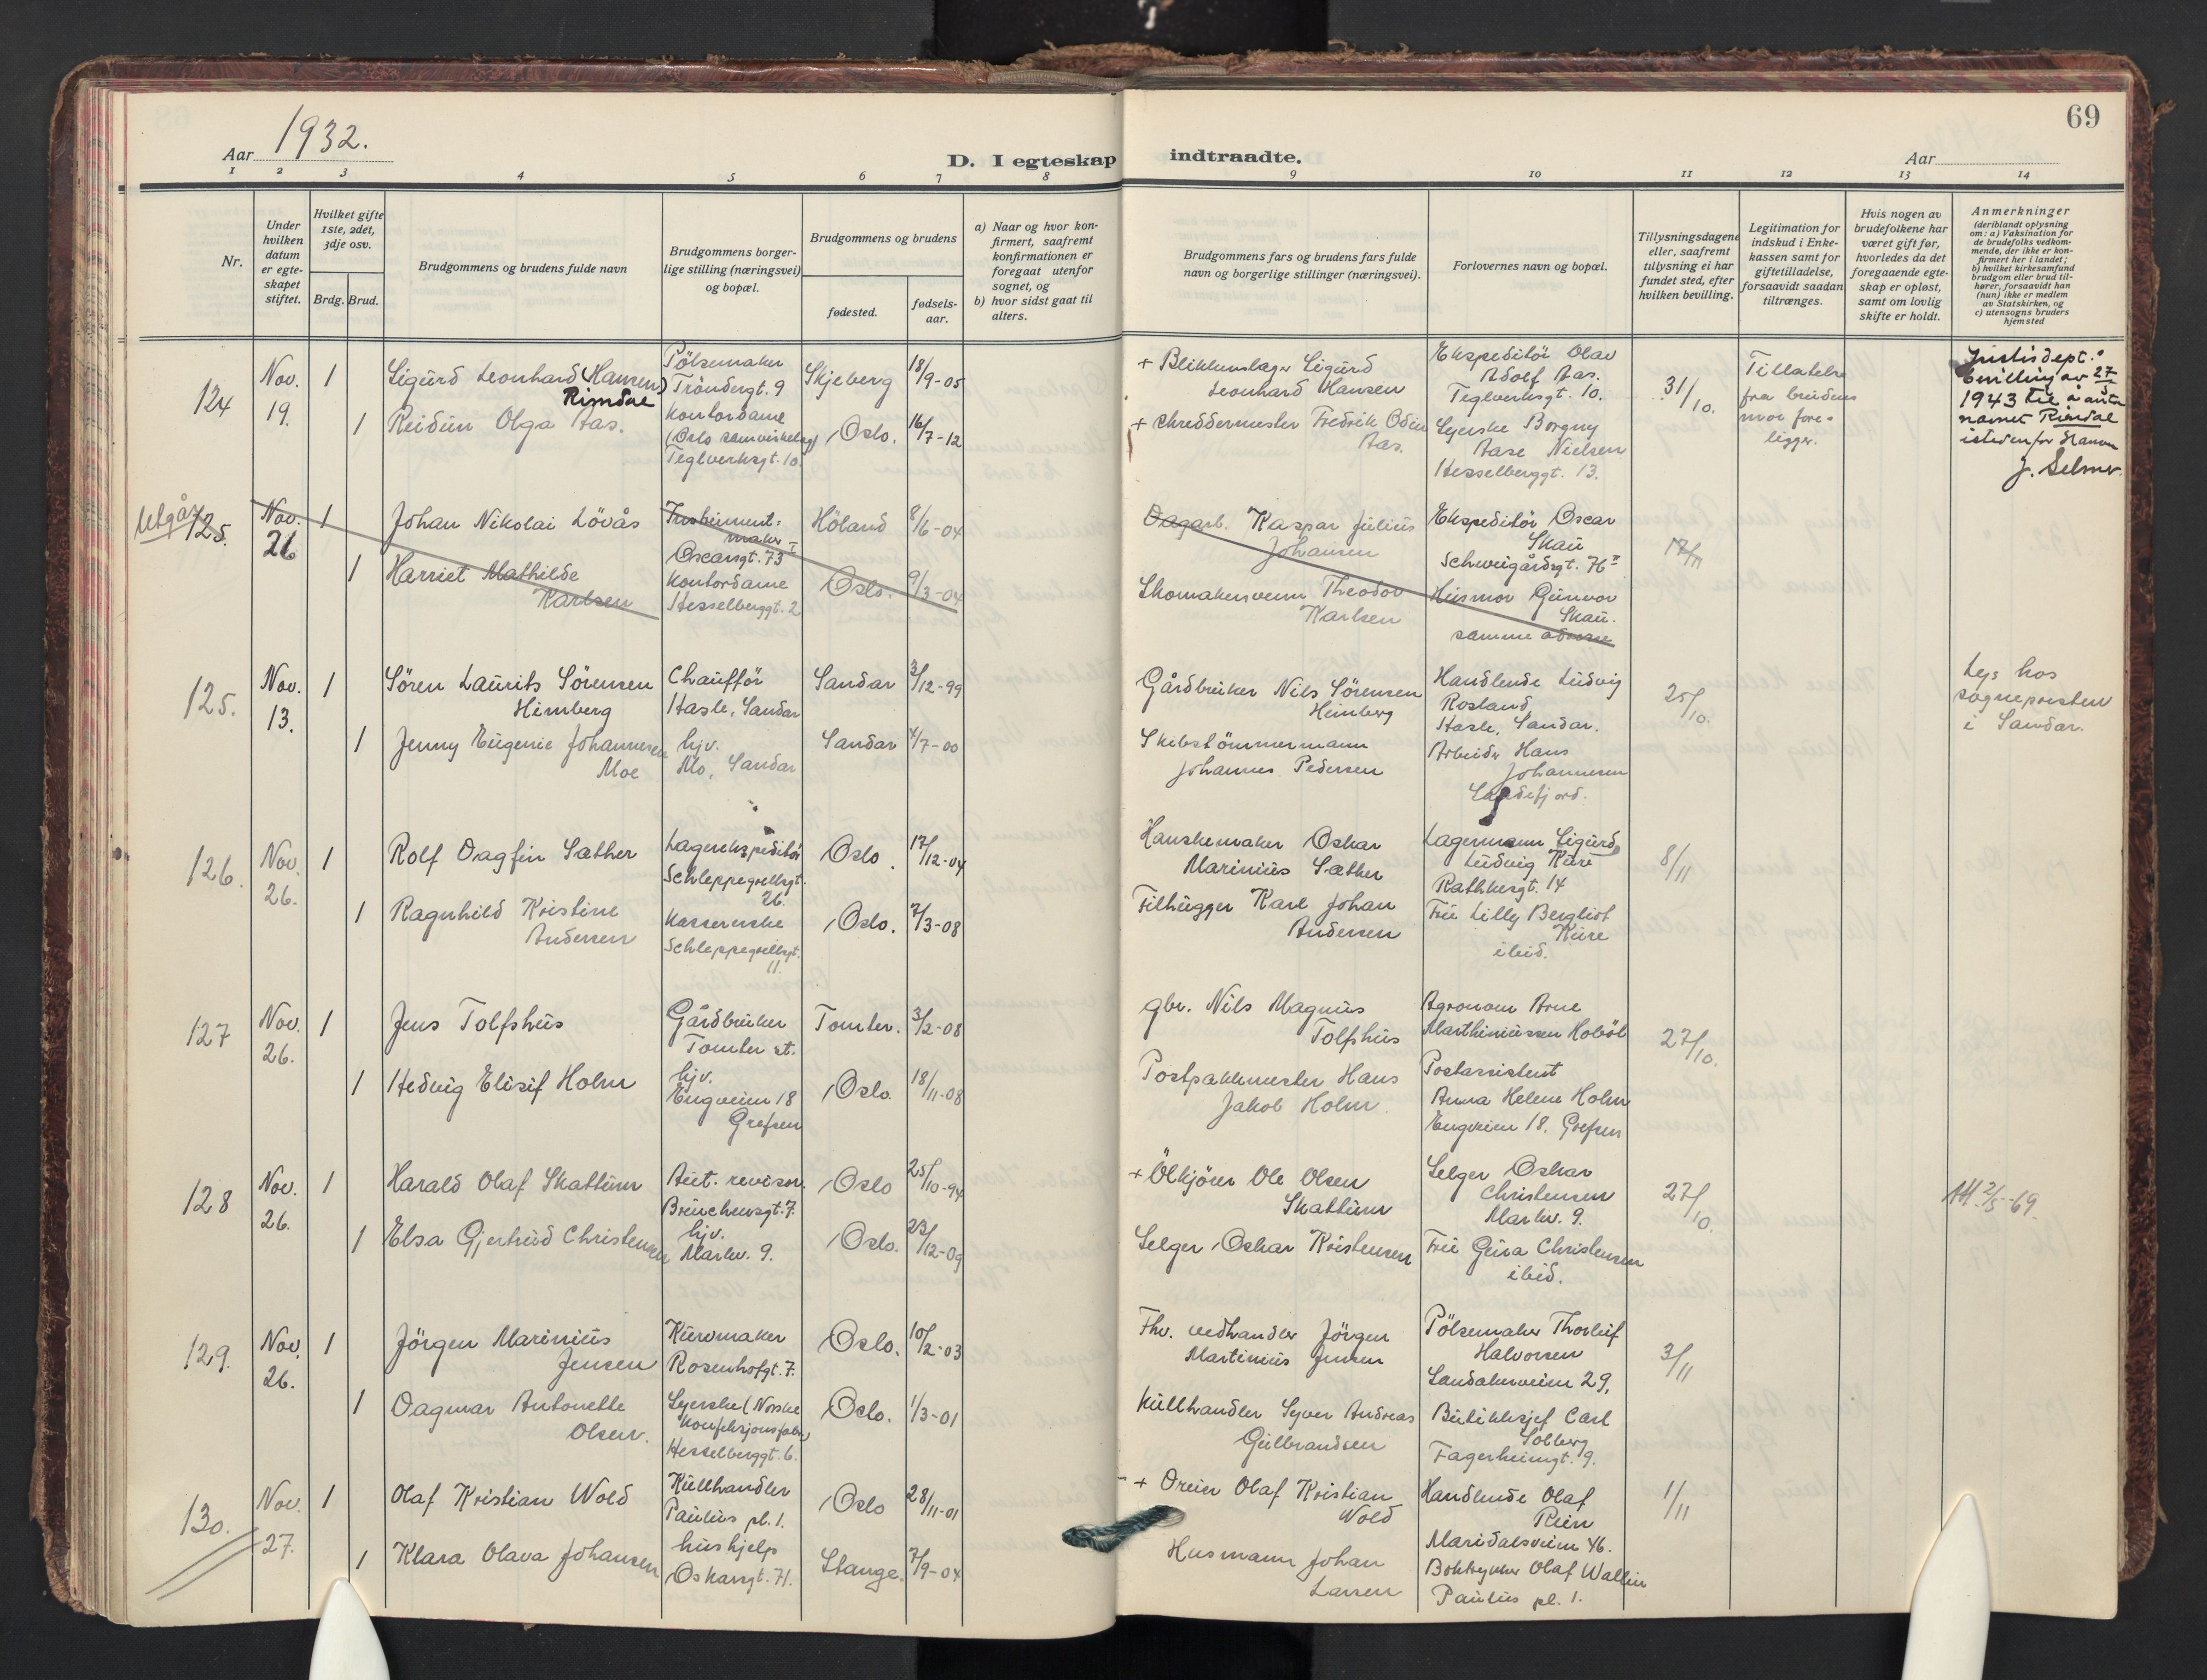 69
Aar 1932.
D. I egteskap indtraadte.
Aar
1 2 3 4 5 6 7 8 9 10 11 12 13 14
Nr.
Under hvilken datum er egte-skapet stiftet.
Hvilket gifte 1ste, 2det, 3dje osv.
Brdg. Brud.
Brudgommens og brudens fulde navn
Brudgommens borger-lige stilling (næringsvei) og bopæl.
Brudgommens og brudens
fødested.
fødsels-aar.
a) Naar og hvor kon-firmert, saafremt konfirmationen er foregaat utenfor sognet, og
b) hvor sidst gaat til alters.
Brudgommens fars og brudens fars fulde navn og borgerlige stillinger (næringsvei).
Forlovernes navn og bopæl.
Tillysningsdagene eller, saafremt tillysning ei har fundet sted, efter hvilken bevilling.
Legitimation for indskud i Enke-kassen samt for giftetilladelse, forsaavidt saadan tiltrænges.
Hvis nogen av brudefolkene har været gift før, hvorledes da det foregaaende egte-skap er opløst, samt om lovlig skifte er holdt.
Anmerkninger
(deriblandt oplysning om: a) Vaksination for de brudefolks vedkom-mende, der ikke er kon-firmert her i landet; b) hvilket kirkesamfund brudgom eller brud til-hører, forsaavidt han (hun) ikke er medlem av Statskirken, og c) utensogns bruders hjemsted
124
Nov. 19.
1
Sigurd Leonhard (Hansen)
Rimdal
Pölsemaker
Tröndergt. 9
Skjeberg
18/9-05
+ Blikkenslager Sigurd
Leonhard Hansen
Ekspeditör Olav
Adolf Aas.
Teglverksgt. 10.
31/10.
Tillatelse
fra brudens
mor fore-
ligger.
Justisdept.s
bevilling av 27
1943 til å anta
navnet Rimdal
istedenfor Hansen
J. Selmer
1
Reidun Olga Aas.
Kontordame
(Oslo samvirkelag)
Teglverksgt. 10.
Oslo.
16/7-12
+ Skreddermester Fredrik Odin
Aas.
Syerske Borgny
Aase Nielsen
Hesselberggt. 13.
Utgår
125.
Nov. 26
1
Johan Nikolai Lövås
Instrument-
maker
Oscarsgt. 73 I
Höland
8/6-04
Dagarb. Kaspar Julius
Johansen
Ekspeditör Oscar
Skau
Schweigårdsgt. 76 II
17/11
1
Harriet Mathilde
Karlsen
Kontordame
Hesselberggt. 2
Oslo.
9/3-04
Skomakersvenn Theodor
Karlsen
Husmor Gunvor
Skau.
samme adresse
125.
Nov. 13.
1
Sören Laurits Sörensen
Himberg
Chaufför
Hasle, Sandar
Sandar
3/12-99
Gårdbruker Nils Sörensen
Heimberg
Handlende Ludvig
Rosland
Hasle, Sandar.
25/10.
Lys hos
sognepresten
i Sandar.
1
Jenny Eugenie Johannesen
Moe
hjv.
Mo, Sandar
Sandar
4/7-00
Skibstömmermann
Johannes Pedersen
Arbeider Hans
Johannesen
Sandefjord.
126.
Nov. 26.
1
Rolf Dagfin Sæther
Lagerekspeditör
Schleppegrellsgt.
26.
Oslo.
17/12-04
Hanskemaker Oskar
Marinius Sæther
Lagermann Sigurd
Ludvig Kure
Rathkesgt. 14
8/11
1
Ragnhild Kristine
Andersen
Kassererske
Schleppegrellsgt.
11.
Oslo.
7/3-08
Filhugger Karl Johan
Andersen
Fru Lilly Bergliot
Kure
ibid.
127
Nov. 26.
1
Jens Tolfshus
Gårdbruker
Tomter st.
Tomter.
3/2-08
gbr. Nils Magnus
Tolfshus
Agronom Arne
Marthiniussen Hobøl
27/10.
1
Hedvig Elisif Holm
hjv.
Engveien 18
Grefsen
Oslo.
18/11-08
Postpakkmester Hans
Jakob Holm.
Postassistent
Anna Helene Holm
Engveien 18. Grefsen
128
Nov. 26.
1
Harald Olaf Skattum
Aut. revisor.
Breuchensgt. 7.
Oslo
25/10-94
+ Ölkjörer Ole Olsen
Skattum
Selger Oskar
Christensen
Markv. 9.
27/10
2/5-69.
1
Elsa Gjertrud Christensen
hjv.
Markv. 9.
Oslo.
23/12-09
Selger Oskar Kristensen
Fru Gina Christensen
ibid.
129.
Nov. 26.
1
Jörgen Marinius
Jensen
Kurvmaker
Rosenhofgt. 7.
Oslo.
10/2-03
Fhv. vedhandler Jörgen
Martinius Jensen
Pölsemaker Thorleif
Halvorsen
Sandakerveien 29.
3/11
1
Dagmar Antonette
Olsen.
Syerske (Norske
Konfeksjonsfabr.)
Hesselberggt. 6.
Oslo.
1/3-01
Kullhandler Syver Andreas
Gulbrandsen
Butikksjef Carl
Solberg
Fagerheimgt. 9.
130.
Nov. 27.
1
Olaf Kristian Wold
Kullhandler
Paulus pl. 1.
Oslo
28/11-01
+ Dreier Olaf Kristian
Wold
Handlende Olaf
Rein
Maridalsveien 46.
1/11
1
Klara Olava Johansen
hushjelp
Oskarsgt. 71.
Stange.
7/9-04
Husmann Johan
Larsen
Boktrykker Olaf Wallin
Paulus pl. 1.